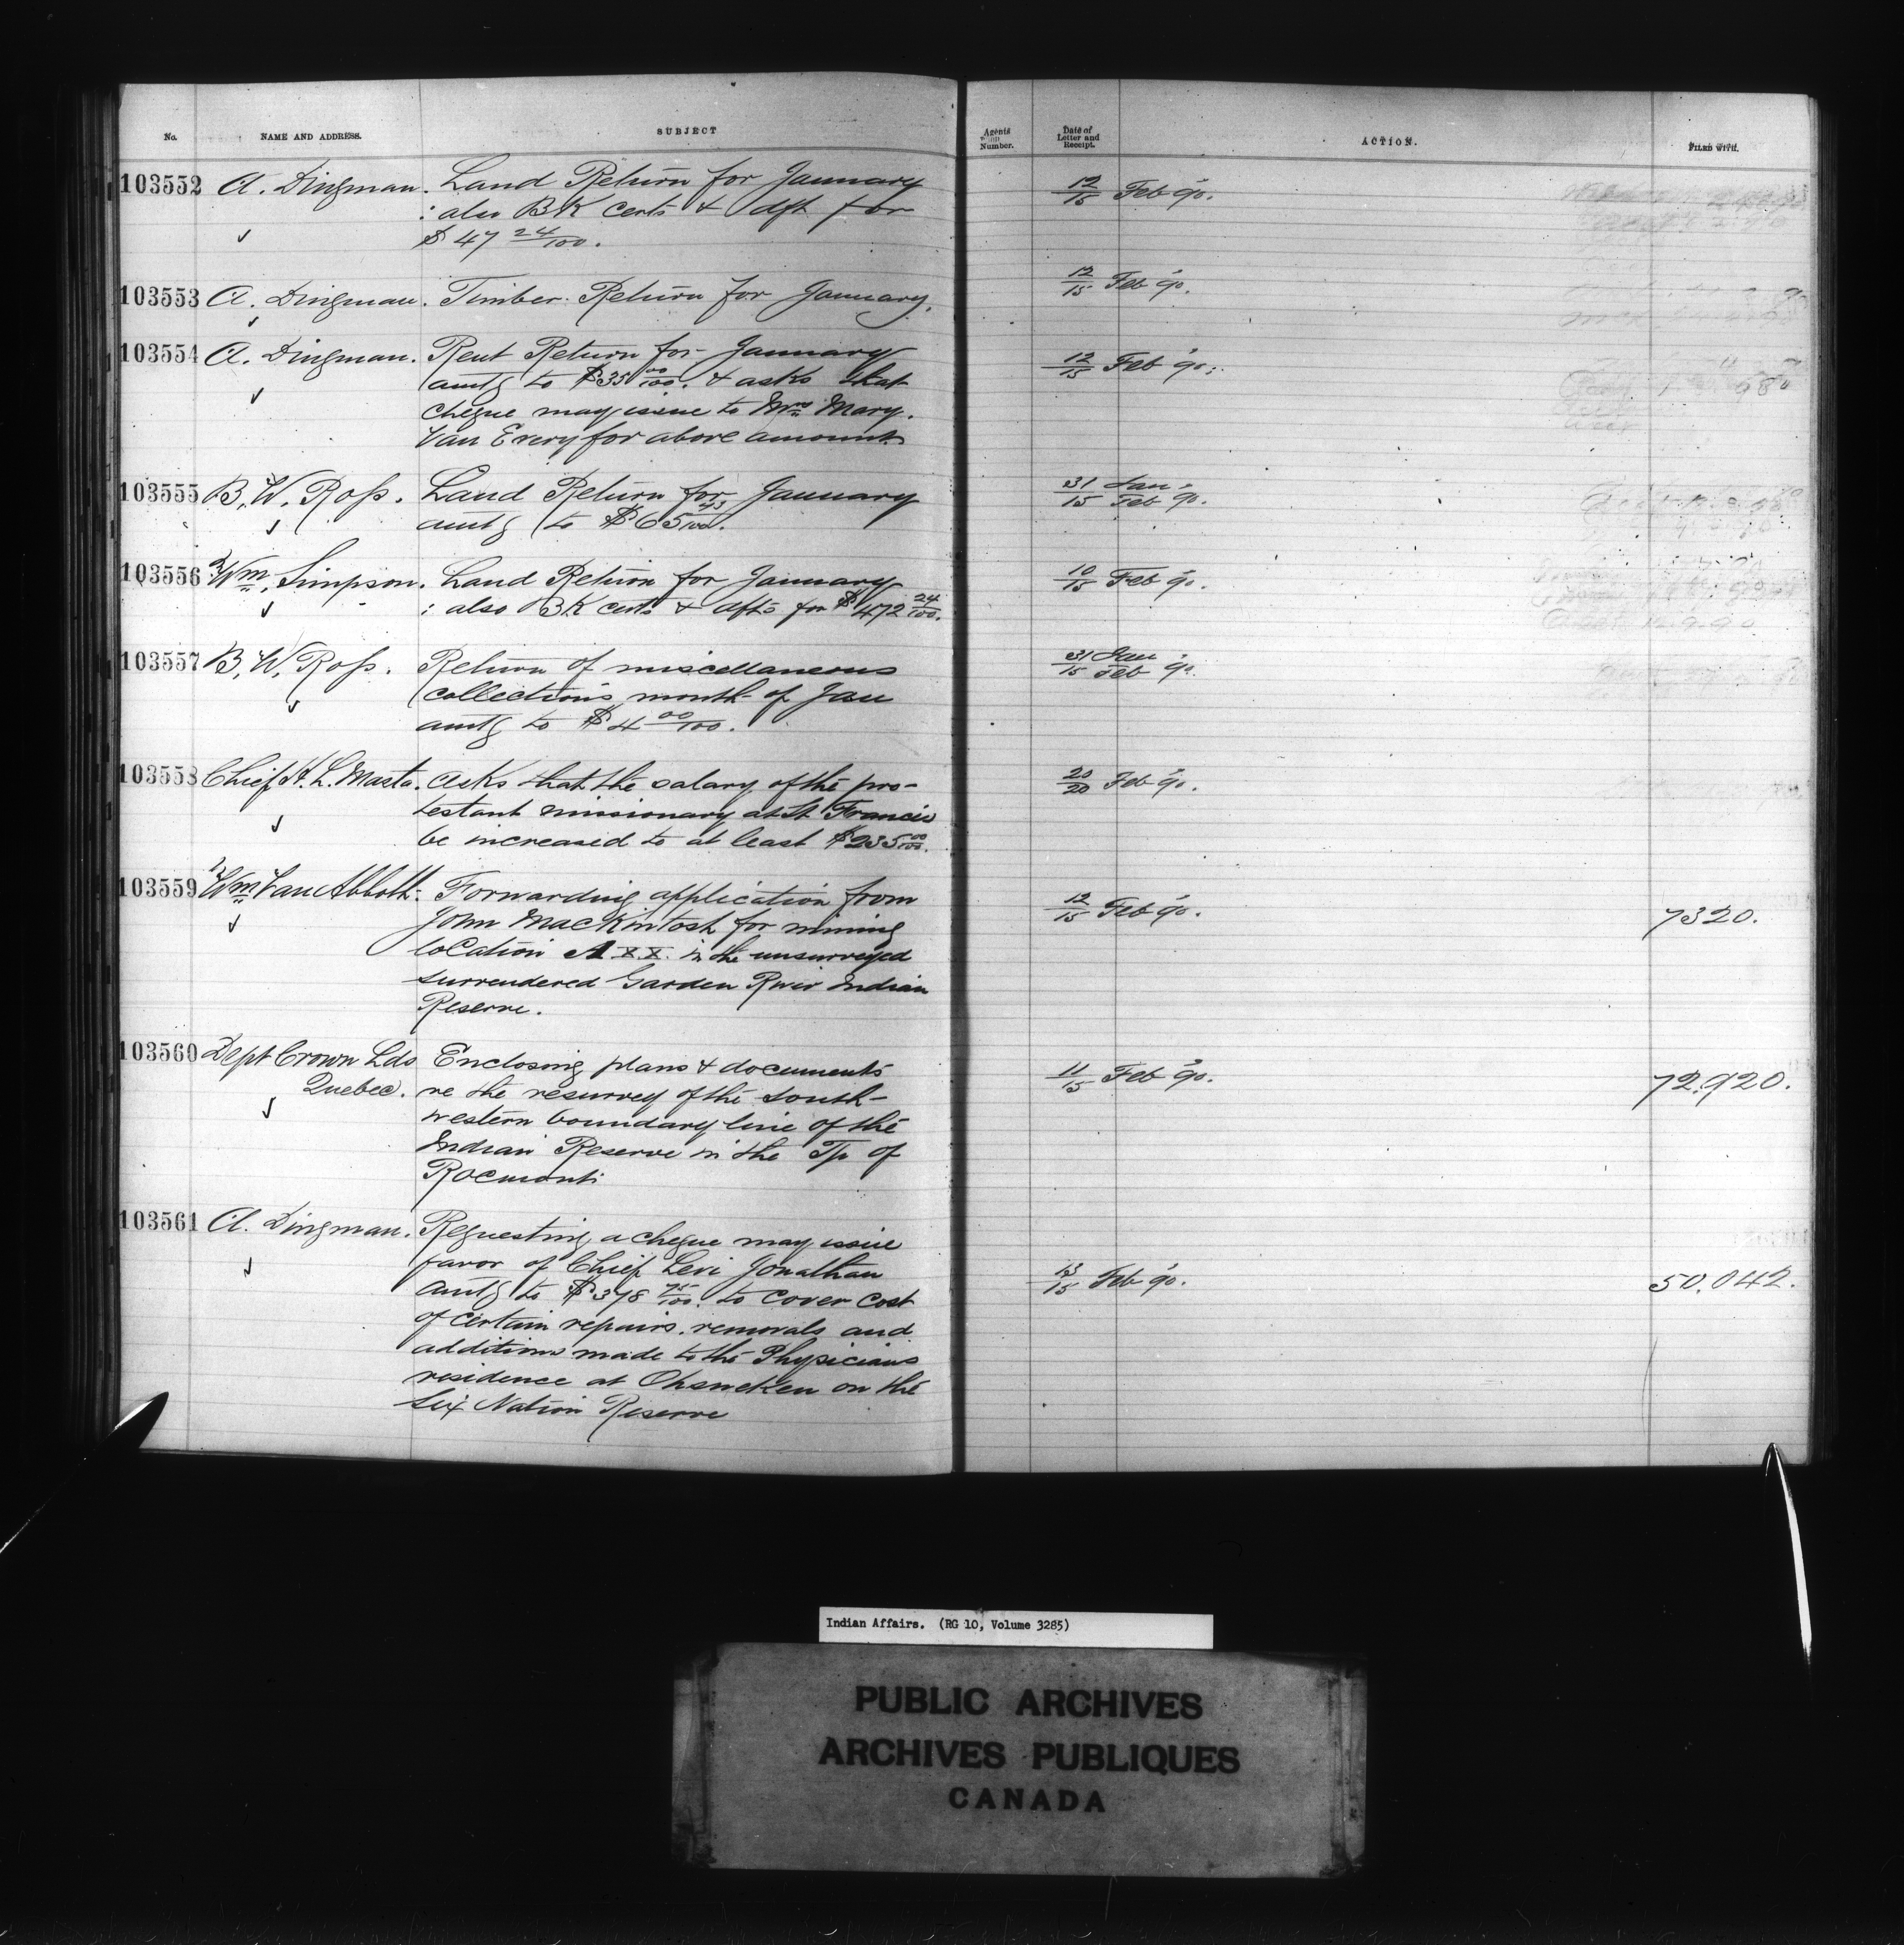 No. NAME AND ADDRESS. SUBJECT Agents Number. Date of Letter and Receipt. ACTION. FILED WITH.
103552 A. Dingman. Land Return for January 12/15 Feb '90.
: also BK certs & dft for
$47 24/100.
103553 A. Dingman. Timber Return for January. 12/15 Feb '90.
103554 A. Dingman. Rent Return for January 12/15 Feb '90.
amtg to $35 00/100. & asks that
cheque may issue to Mrs Mary.
Van Every for above amount.
103555 B. W. Ross. Land Return for January 31/15 Jan/Feb '90.
amtg to $65 43/100.
103556 Wm. Simpson. Land Return for January 10/15 Feb '90.
: also BK certs & dfts for $472 24/100.
103557 B. W. Ross. Return of miscellaneous 31/15 Jan/Feb '90.
collections month of Jan
amtg to $4 00/100.
103558 Chief H. L. Masta. Asks that the salary of the pro- 20/20 Feb '90.
testant missionary at St Francis
be increased to at least $235 00/100.
103559 Wm Van Abbott. Forwarding application from 12/15 Feb '90. 7320.
John MacKintosh for mining
location A X.X. in the unsurveyed
surrendered Garden River Indian
Reserve.
103560 Dept Crown Lds Enclosing plans & documents 11/15 Feb '90. 72.920.
Quebec. re the resurvey of the south-
western boundary line of the
Indian Reserve in the Tp of
Rocmont
103561 A. Dingman. Requesting a cheque may issue
favor of Chief Levi Jonathan 13/15 Feb '90. 50.042.
amtg to $378 75/100. to cover cost
of certain repairs. removals and
additions made to the Physicians
residence at Ohsweken on the
Six Nation Reserve
Indian Affairs. (RG 10, Volume 3285)
PUBLIC ARCHIVES
ARCHIVES PUBLIQUES
CANADA